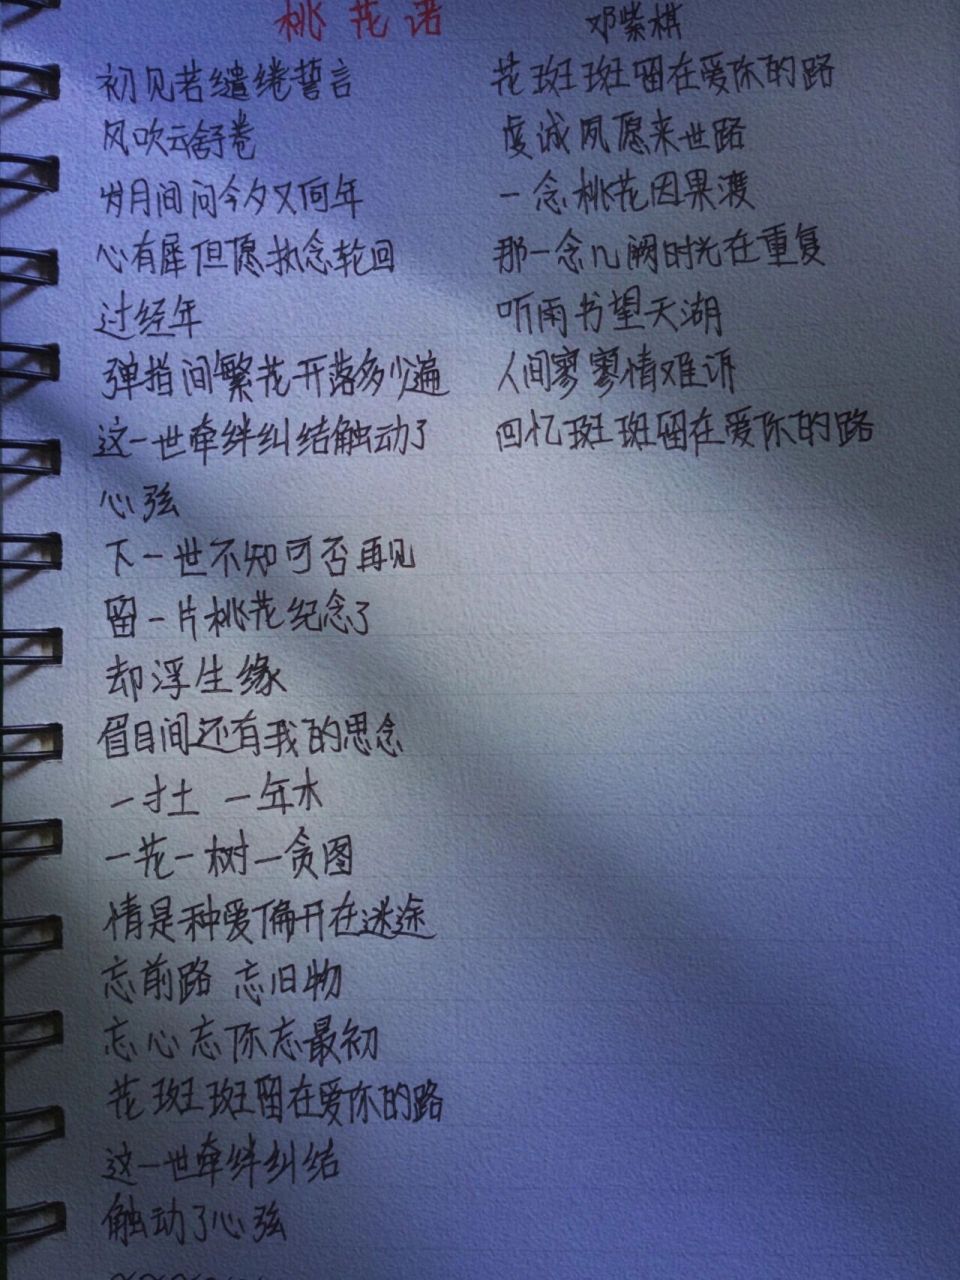 桃花诺 邓紫棋
初见若缱绻誓言
风吹云舒卷
岁月间问今夕又何年
心有犀但愿执念轮回
过经年
弹指间繁花开落多少遍
这一世牵绊纠结触动了
心弦
下一世不知可否再见
留一片桃花纪念了
却浮生缘
眉目间还有我的思念
一寸土 一年木
一花一树一贪图
情是种爱偏开在迷途
忘前路 忘旧物
忘心忘你忘最初
花斑斑留在爱你的路
这一世牵绊纠结
触动了心弦
花斑斑留在爱你的路
虔诚夙愿来世路
一念桃花因果渡
那一念几阙时光在重复
听雨书望天湖
人间寥寥情难诉
回忆斑斑留在爱你的路